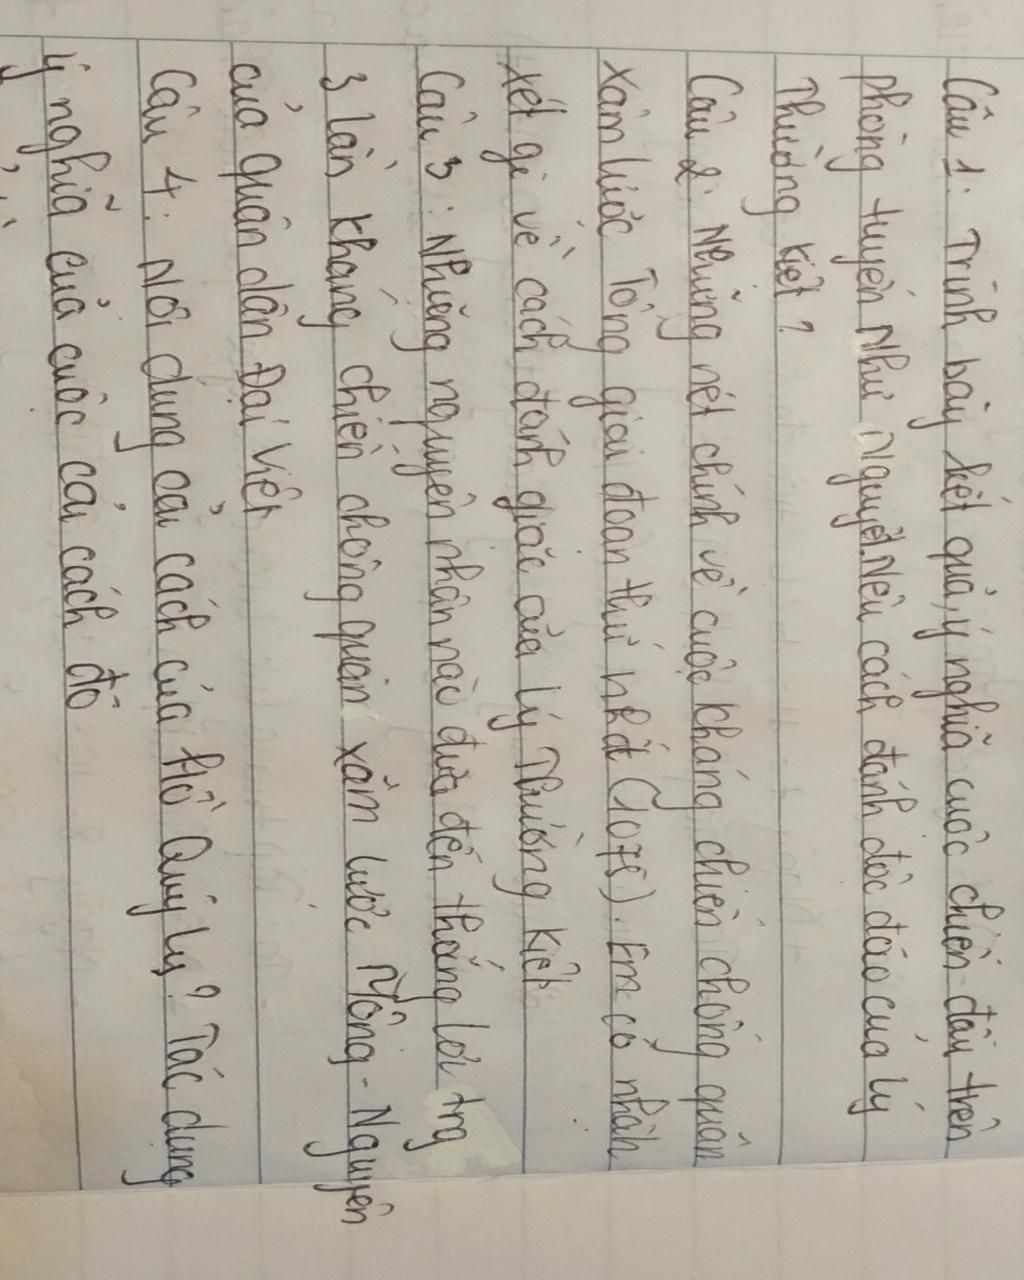 Câu 1: Trình bày kết quả, ý nghĩa cuộc chiến đấu trên
phòng tuyến Như Nguyệt. Nêu cách đánh độc đáo của Lý
Thường Kiệt?
Câu 2: Những nét chính về cuộc kháng chiến chống quân
xâm lược Tống giai đoạn thứ nhất (1075). Em có nhận
xét gì về cách đánh giặc của Lý Thường Kiệt
Câu 3: Những nguyên nhân nào đưa đến thắng lợi trg
3 lần kháng chiến chống quân xâm lược Mông - Nguyên
của quân dân Đại Việt
Câu 4: Nội dung cải cách của Hồ Quý Ly? Tác dụng
ý nghĩa của cuộc cải cách đó